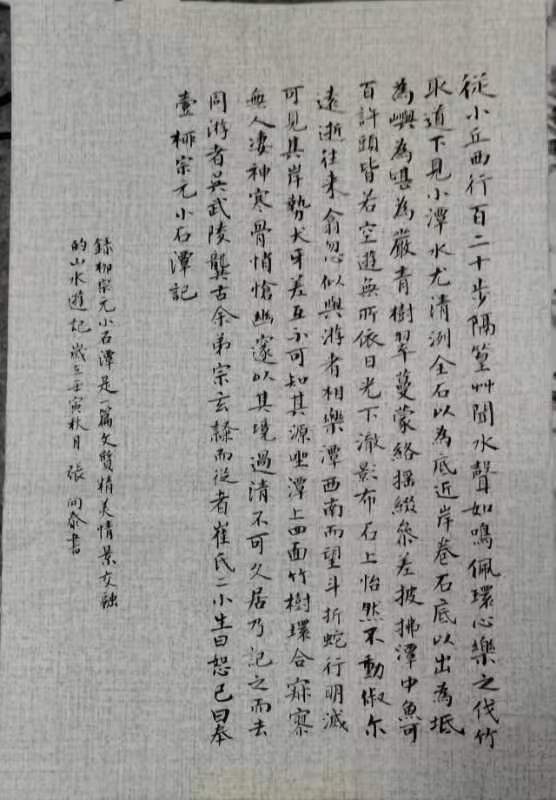 從小丘西行百二十步隔篁竹聞水聲如鳴佩環心樂之伐竹
取道下見小潭水尤清冽全石以為底近岸卷石底以出為坻
為嶼為嵁為巖青樹翠蔓蒙絡搖綴參差披拂潭中魚可
百許頭皆若空遊無所依日光下澈影布石上怡然不動俶尔
遠逝往来翕忽似與游者相樂潭西南而望斗折蛇行明滅
可見其岸勢犬牙差互不可知其源坐潭上四面竹樹環合寂寥
無人淒神寒骨悄愴幽邃以其境過清不可久居乃記之而去
同游者吳武陵龔古余弟宗玄隸而從者崔氏二小生曰恕己曰奉
壹 柳宗元小石潭記
錄柳宗元小石潭是一篇文質精美情景交融
的山水遊記 歲在壬寅秋月 張 書